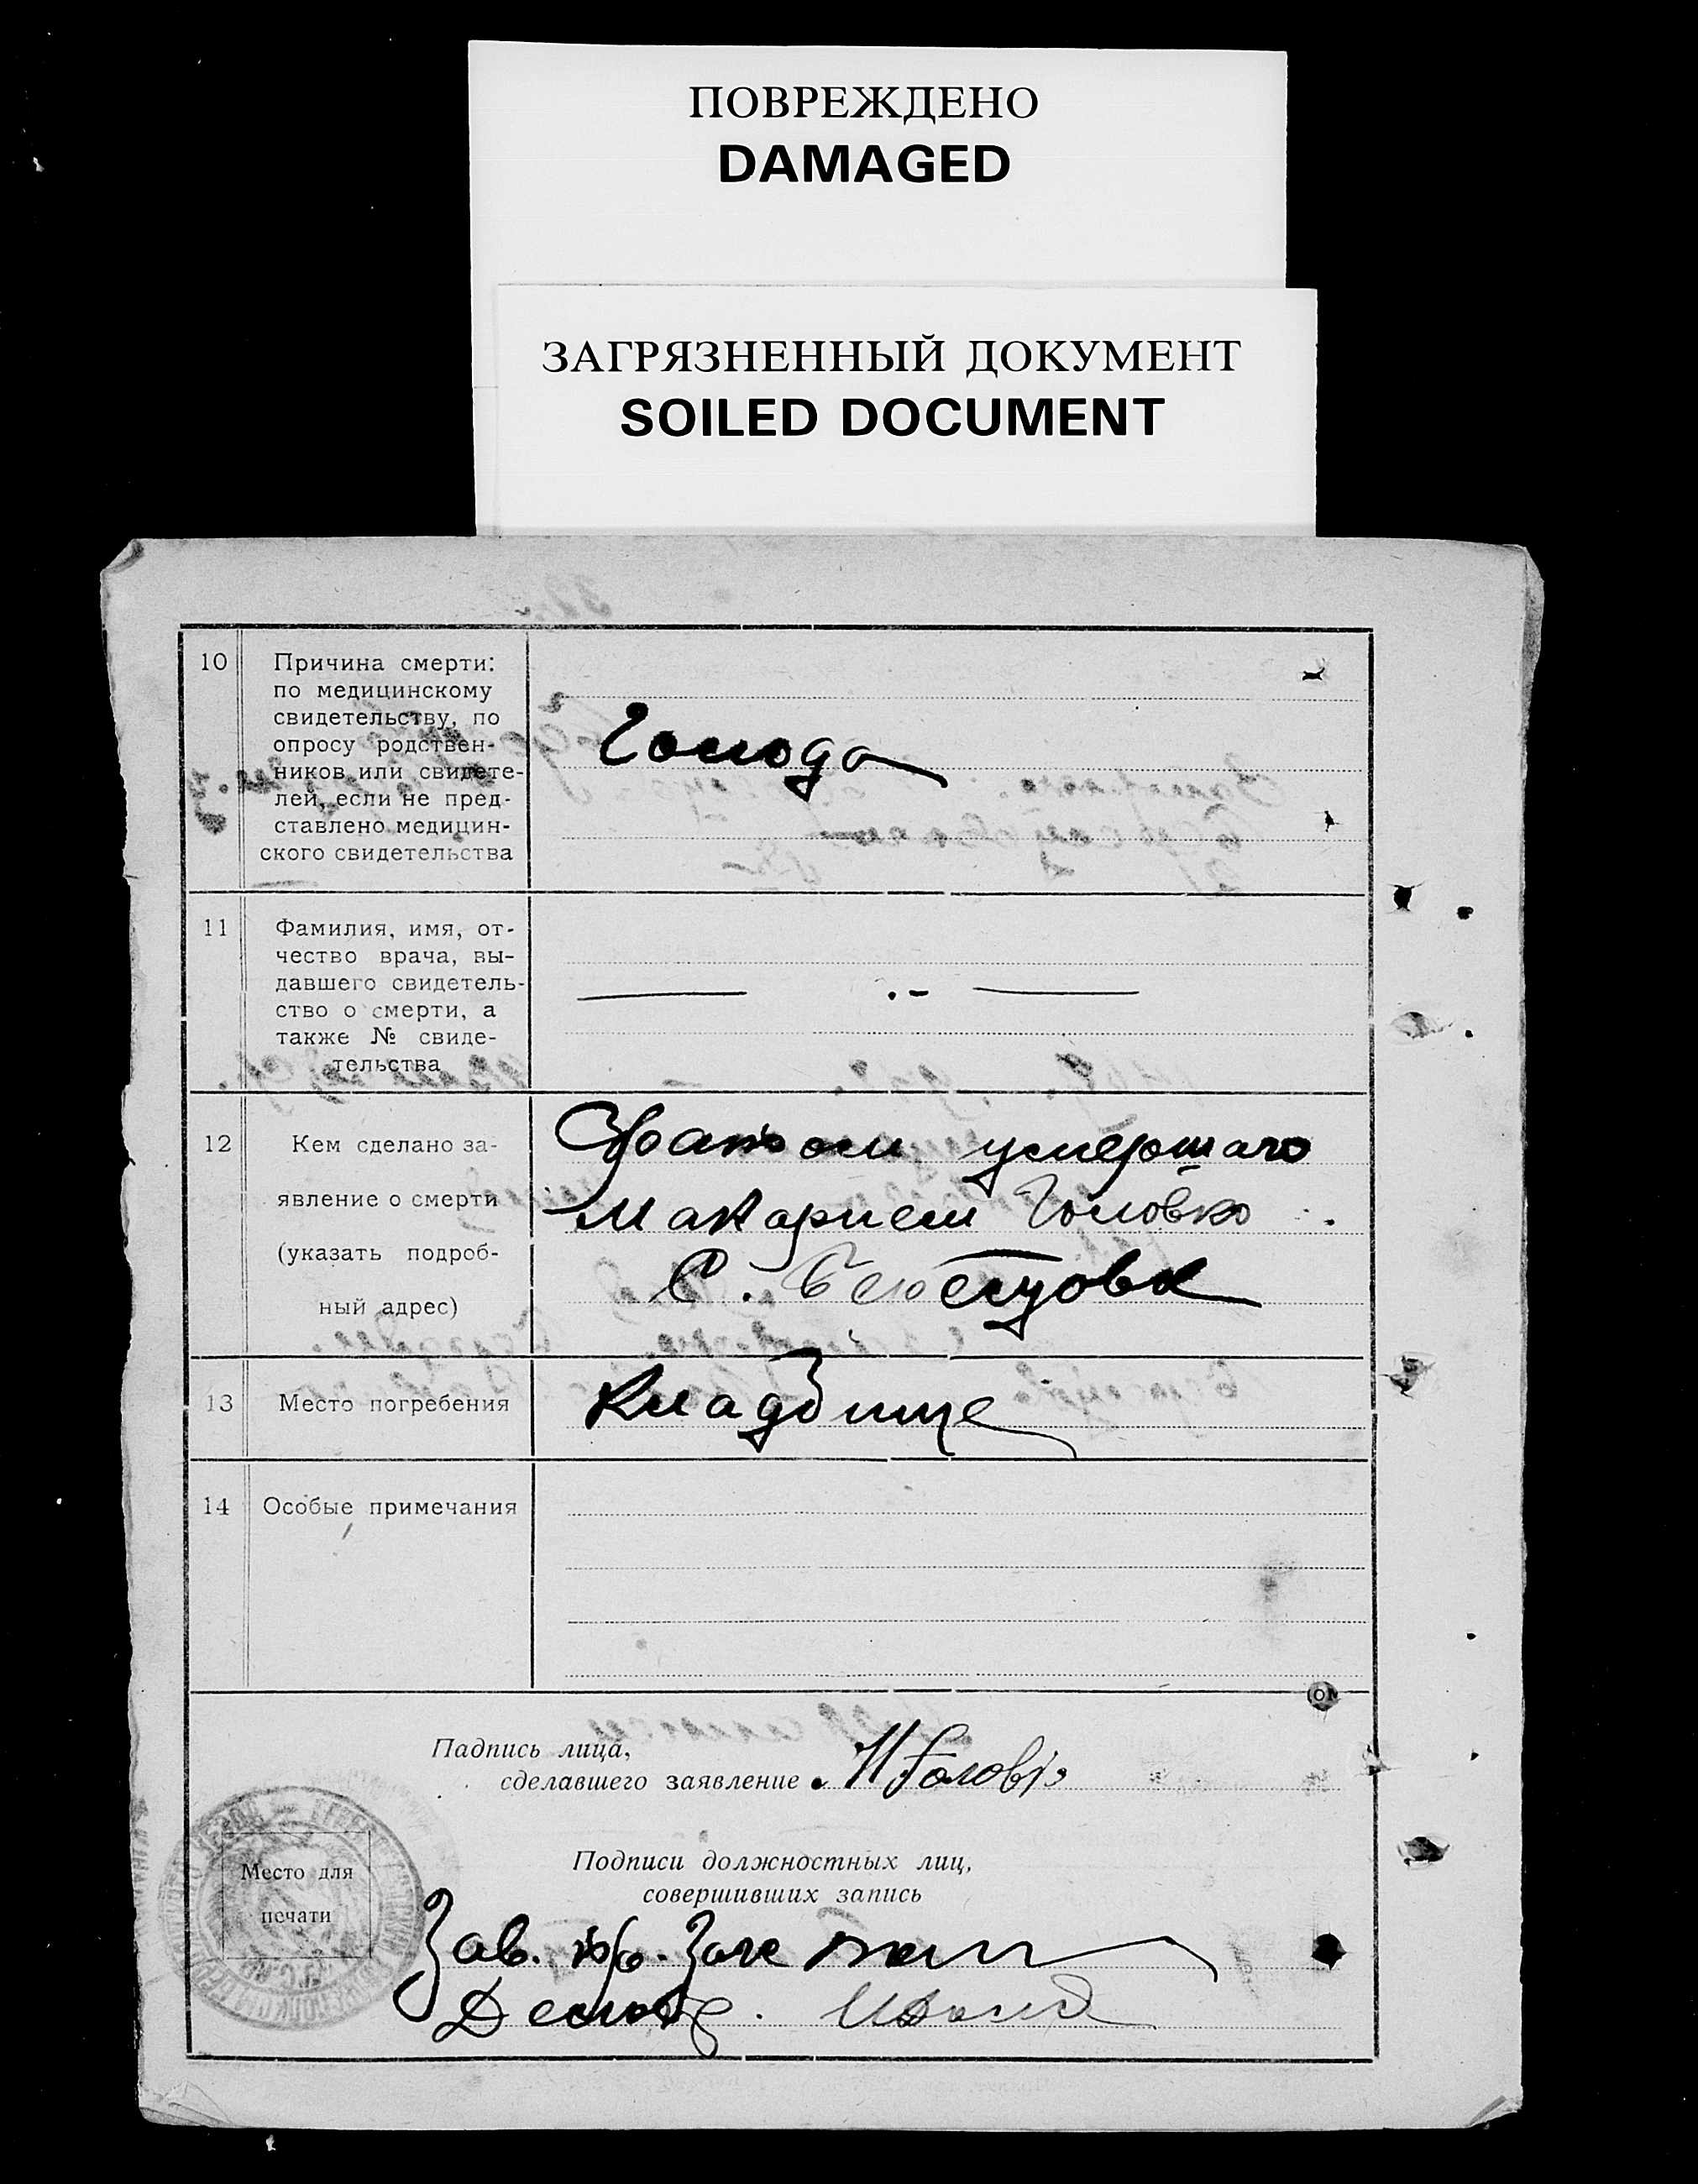 ПОВРЕЖДЕНО
DAMAGED
ЗАГРЯЗНЕННЫЙ ДОКУМЕНТ
SOILED DOCUMENT
10
Причина смерти:
по медицинскому
свидетельству, по
опросу родствен-
ников или свидете-
лей, если не пред-
ставлено медицин-
ского свидетельства
Голода
11
Фамилия, имя, от-
чество врача, вы-
давшего свидетель-
ство о смерти, а
также № свиде-
тельства
12
Кем сделано за-
явление о смерти
(указать подроб-
ный адрес)
Братом умершаго
Макарием Головко
С.
13
Место погребения
Кладбище
14
Особые примечания
Падпись лица,
сделавшего заявление
М Головко
Место для
печати
Подписи должностных лиц,
совершивших запись
Зав. Загс
Делопр.